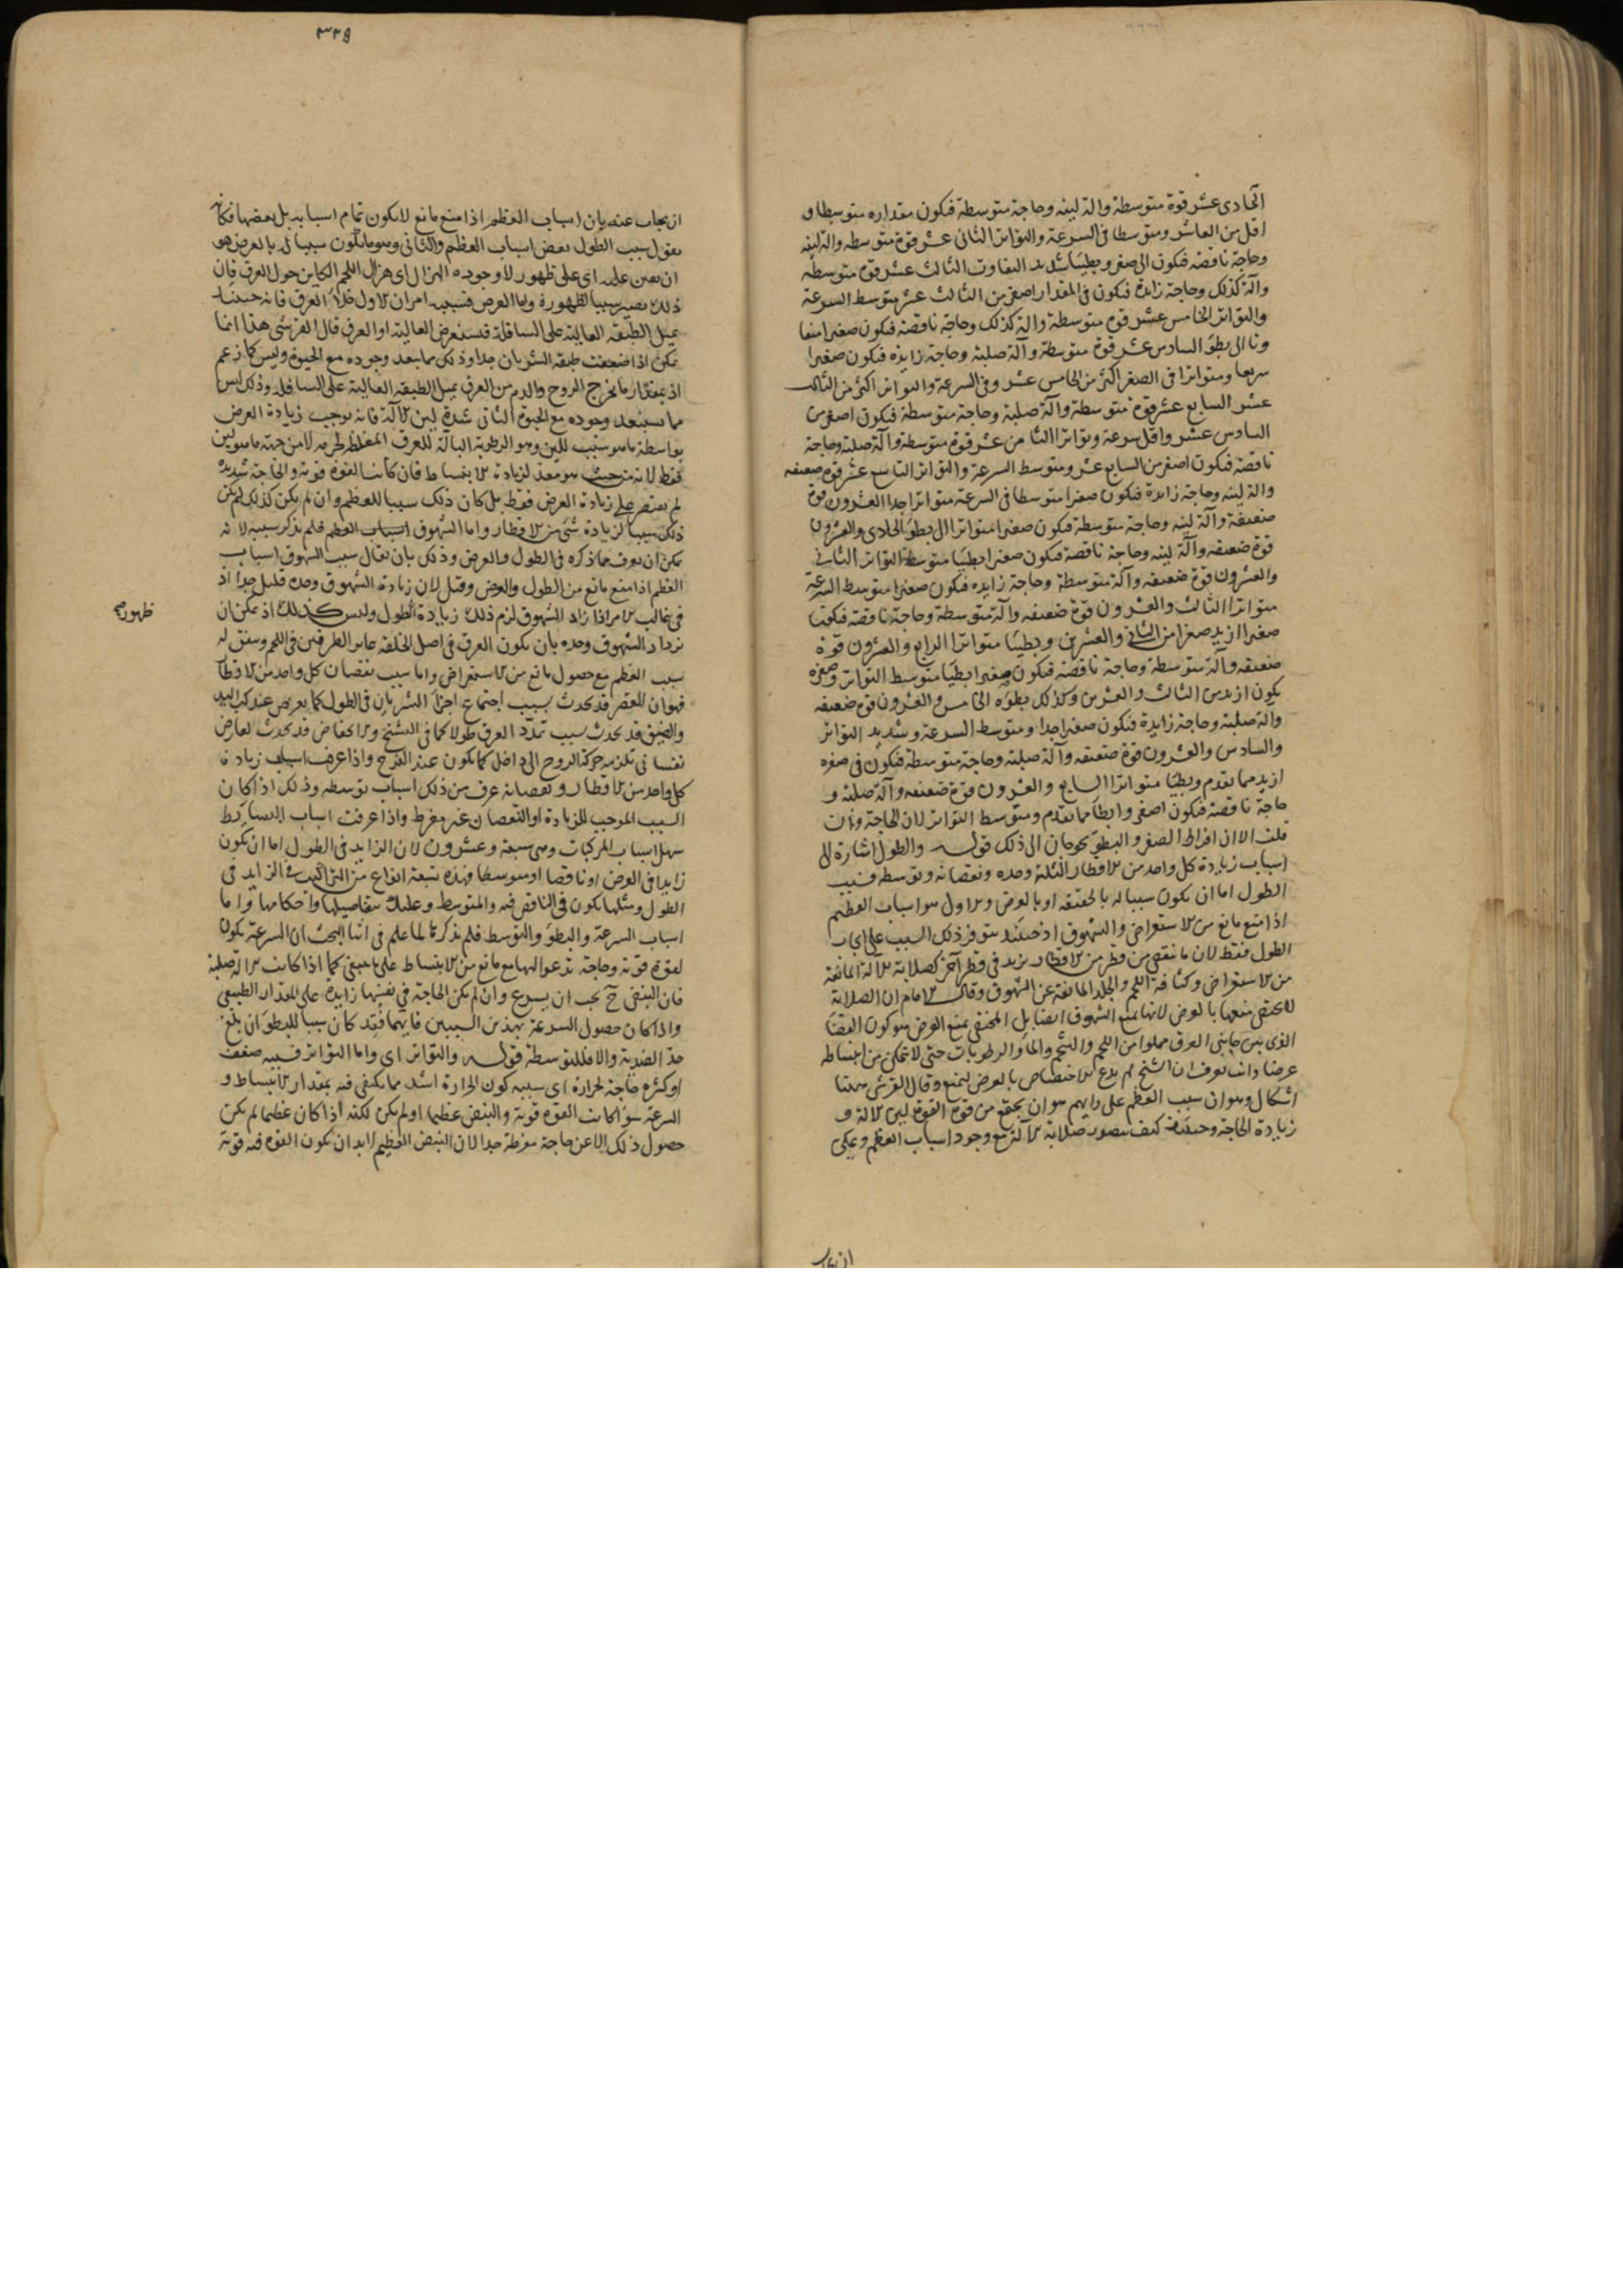 الحادى عشر قوة متوسطة والة لينه وحاجة متوسطة فيكون مقداره متوسطا و
اقل من العاشر ومتوسطا فى السرعة والتواتر الثانى عشر قوة متوسطه والة لينه
وحاجة ناقصه فيكون الى صغر وبطيئا شديد التفاوت الثالث عشر قوة متوسطة
وآلة كذلك وحاجة زايدة فيكون فى المقدار اصغر من الثالث عشر متوسط السرعة
والتواتر الخامس عشر قوة متوسطة والة كذلك وحاجة ناقصة فيكون صغيرا ايضا
وما الى بطؤ السادس عشر قوة متوسطة وآلة صلبة وحاجة زايدة فيكون صغيرا
سريعا ومتواترا فى الصغر اكثر من الخامس عشر وفى السرعة والتواتر اكثر من الثالث
عشر السابع عشر قوة متوسطة وآلة صلبة وحاجة متوسطة فيكون اصغر من
السادس عشر واقل سرعة وتواترا الثامن عشر قوة متوسطة وآلة صلبة وحاجة
ناقصة فيكون اصغر من السابع عشر ومتوسط السرعة والتواتر التاسع عشر قوة ضعيفه
والة لينه وحاجة زايدة فيكون صغيرا متوسطا فى السرعة متواترا جدا العشرون قوة
ضعيفة وآلة لينه وحاجة متوسطة فيكون صغيرا متواترا الى بطؤ الحادى والعشرون
قوة ضعيفه وآلة لينه وحاجة ناقصة فيكون صغيرا بطيئا متوسط التواتر الثانى
والعشرون قوة ضعيفه وآلة متوسطة وحاجة زايده فيكون صغيرا متوسط السرعة
متواترا الثالث والعشرون قوة ضعيفه وآلة متوسطة وحاجة ناقصة فيكون
صغيرا ازيد صغرا من الثانى والعشرين وبطيئا متواترا الرابع والعشرون قوة
ضعيفه وآلة متوسطة وحاجة ناقصة فيكون صغيرا بطيئا متوسط التواتر وصغره
يكون ازيد من الثالث والعشرين وكذلك بطؤه الخامس والعشرون قوة ضعيفه
والة صلبة وحاجة زايدة فيكون صغيرا جدا ومتوسط السرعة وشديد التواتر
والسادس والعشرون قوة ضعيفه وآلة صلبة وحاجة متوسطة فيكون فى صغره
ازيد مما تقدم وبطيئا متواترا السابع والعشرون قوة ضعيفه وآلة صلبة و
حاجة ناقصة فيكون اصغر وابطأ مما تقدم ومتوسط التواتر لان الحاجة وان
قلت الا ان افراط الصغر والبطؤ يحوجان الى ذلك قوله والطول اشارة الى
اسباب زيادة كل واحد من الاقطار الثلثة وحده ونقصانه وتوسطه فسبب
الطول اما ان يكون سببا له بالحقيقه او بالعرض والاول هو اسباب العظيم
اذا منع مانع من الاستعراض والشهوق اذ حينئذ يتوفر ذلك السبب على ايجاب
الطول فقط لان ما ينقص من قطر من الاقطار يزيد فى قطر آخر كصلابة الآلة المانعة
من الاستعراض وكثافة اللحم والجلد المانعة عن الشهوق وقال الامام ان الصلابة
لا يختص منعها بالعرض لانها تمنع الشهوق ايضا بل المختص بمنع العرض هو كون الفضا
الذى بين جانبى العرق مملوا من اللحم والشحم والما والرطوبات حتى لا يتمكن من انبساطه
عرضا وانت تعرف ان الشيخ لم يدع الاختصاص بالعرض ليمنع وقال القرشى ههنا
اشكال وهو ان سبب العظم على رايهم هو ان يجتمع من قوة القوة لين الآلة و
زيادة الحاجة وحينئذ كيف يتصور صلابة الآلة مع وجود اسباب العظم ويمكن
ان يجاب
٣٣٩
ان يجاب عنه بان اسباب العظم اذا منع مانع لا يكون تمام اسبابه بل بعضها فكانه
يقول سبب الطول بعض اسباب العظم والثانى وهو ما يكون سببا له بالعرض هو
ان يعين عليه اى على ظهوره لا وجوده الهزال اى هزال اللحم الكاين حول العرق فان
ذلك يصير سببا لظهوره واما العرض فسببه امران الاول خلأ العرق فانه حينئذ
يميل الطبقه العاليه على السافلة فيستعرض العاليه او العرق قال القرشى هذا انما
يمكن اذا ضعفت طبقه الشريان جدا وذلك مما يبعد وجوده مع الحيوة وليس كما زعم
اذ بمقدار ما يخرج الروح والدم من العرق يميل الطبقه العالية على السافله وذلك ليس
مما يستبعد وجوده مع الحيوة الثانى شدة لين الآلة فانه يوجب زيادة العرض
بواسطة ما هو سبب للين وهو الرطوبة البالة للعرق المغلظة لجرمه لا من جهة ما هو لين
فقط لانه من حيث هو معد لزيادة الانبساط فان كانت القوة قوية والحاجة شديدة
لم يقتصر على زيادة العرض فقط بل كان ذلك سببا للعظم وان لم يكن كذلك لم يكن
ذلك سببا لزيادة شئ من الاقطار واما الشهوق اسباب العظم فلم يذكر سببه لانه
يمكن ان يعرف مما ذكره فى الطول والعرض وذلك بان يقال سبب الشهوق اسباب
العظم اذا منع مانع من الطول والعرض وقيل لان زيادة الشهوق وحده قليل جدا اذ
فى غالب الامر اذا زاد الشهوق لزم ذلك زيادة الطول وليس كذلك اذ يمكن ان
يزداد الشهوق وحده بان يكون العرق فى اصل الخلقه غاير الطرفين فى اللحم ويتفق له
ظهوره
سبب العظم مع حصول مانع من الاستعراض واما سبب نقصان كل واحد من الاقطار
فهو ان القصر قد يحدث بسبب اجتماع اجزاء الشريان فى الطول كما يعرض عند كب اليد
والضيق قد يحدث بسبب تمدد العرق طولا كما فى التشنج والانخفاض قد يحدث لعارض
نفسانى تلزمه حركة الروح الى داخل كما يكون عند الفزع واذا عرف اسباب زيادة
كل واحد من الاقطار ونقصانه عرف من ذلك اسباب توسطه وذلك اذا كان
السبب الموجب للزيادة او النقصان غير مفرط واذا عرفت اسباب البسايط
سهل اسباب المركبات وهى سبعة وعشرون لان الزايد فى الطول اما ان يكون
زايدا فى العرض او ناقصا او متوسطا فهذه تسعة انواع من التراكيب فى الزايد فى
الطول ومثلها يكون فى الناقص فيه والمتوسط وعليك بتفاصيلها واحكامها واما
اسباب السرعة والبطؤ والتوسط فلم يذكرها لما علم فى اثنا البحث ان السرعة يكون
لقوة قوية وحاجة تدعو اليها مع مانع من الانبساط على ما ينبغى كما اذا كانت الآلة صلبة
فان النبض ح يجب ان يسرع وان لم يكن الحاجة فى نفسها زايدة على المقدار الطبيعى
واذا كان حصول السرعة بهذين السببين فايهما فقد كان سببا للبطؤ ان بلغ
حد الضدية والا فللتوسطة قوله والتواتر اى واما التواتر فسببه ضعف
او كثرة حاجة لحرارة اى سببه كون الحرارة اشد مما يكتفى فيه بمقدار الانبساط و
السرعة سوا كانت القوة قوية والنبض عظيما او لم يكن لكنه اذا كان عظيما لم يكن
حصول ذلك الا عن حاجة مفرطة جدا لان النبض العظيم لا بد ان يكون القوة فيه قوية